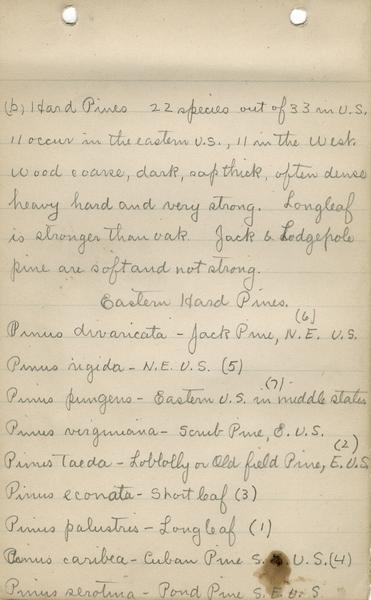 (b) Hard Pines 22 species out of 33 in U.S.
11 occur in the eastern U.S., 11 in the West.
Wood coarse, dark, sap thick, often dense
heavy hard and very strong. Longleaf
is stronger than oak. Jack & Lodgepole
pine are soft and not strong.
Eastern Hard Pines.
(6)
Pinus divaricata - Jack Pine, N.E. U.S.
Pinus rigida - N.E. U.S. (5)
(7)
Pinus pungens - Eastern U.S. in middle states
Pinus virginiana - Scrub Pine, E. U.S.
(2)
Pinus Taeda - Loblolly or Old field Pine, E. U.S.
Pinus econata - Short leaf (3)
Pinus palustris - Longleaf (1)
Pinus caribea - Cuban Pine S. E. U.S. (4)
Pinus serotina - Pond Pine S.E. U.S.